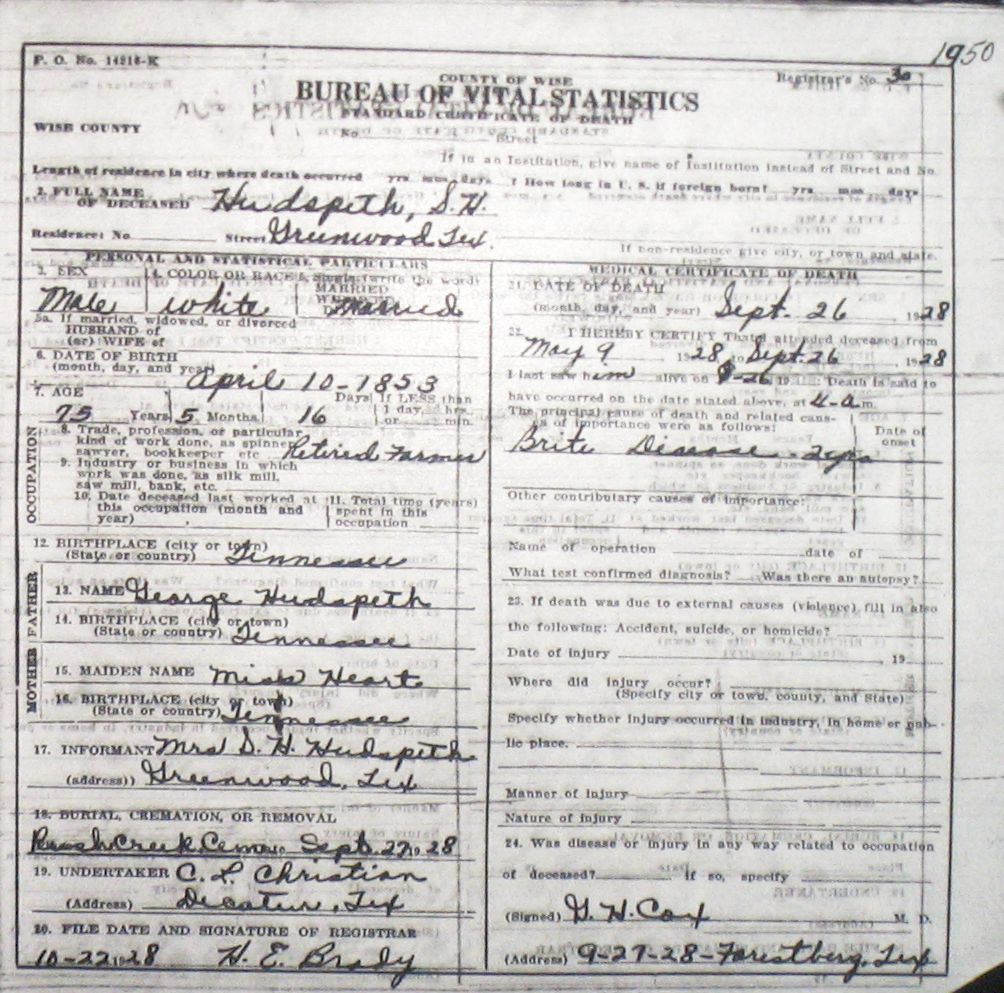 1950
P. O. No. 14216-K
COUNTY OF WISE
Registrar's No. 30
BUREAU OF VITAL STATISTICS
STANDARD CERTIFICATE OF DEATH
WISE COUNTY
No. Street
If in an Institution, give name of Institution instead of Street and No.
Length of residence in city where death occurred yrs mos days ? How long in U. S. if foreign born? yrs mos days
2. FULL NAME
OF DECEASED Hudspeth, S. H.
Residence: No Street Greenwood Tex.
If non-residence give city, or town and state.
PERSONAL AND STATISTICAL PARTICULARS
3. SEX 4. COLOR OR RACE 5. Single, (write the word)
MARRIED
Male White Married
5a. If married, widowed, or divorced
HUSBAND of
(or) WIFE of
6. DATE OF BIRTH
(month, day, and year) April 10-1853
7. AGE Days If LESS than
75 Years 5 Months 16 1 day, hrs.
or min.
OCCUPATION
8. Trade, profession, or particular
kind of work done, as spinner
sawyer, bookkeeper etc Retired Farmer
9. Industry or business in which
work was done, as silk mill,
saw mill, bank, etc.
10. Date deceased last worked at 11. Total time (years)
this occupation (month and spent in this
year) occupation
12. BIRTHPLACE (city or town)
(State or country) Tennessee
FATHER
13. NAME George Hudspeth
14. BIRTHPLACE (city or town)
(State or country) Tennessee
MOTHER
15. MAIDEN NAME Miss Heart
16. BIRTHPLACE (city or town)
(State or country) Tennessee
17. INFORMANT Mrs D. H. Hudspeth
(address)) Greenwood, Tex
18. BURIAL, CREMATION, OR REMOVAL
Rush Creek Cem Sept. 27 1928
19. UNDERTAKER C. L. Christian
(Address) Decatur, Tex
20. FILE DATE AND SIGNATURE OF REGISTRAR
10-22 1928 H. E. Brady
MEDICAL CERTIFICATE OF DEATH
21. DATE OF DEATH
(month, day, and year) Sept. 26 1928
22. I HEREBY CERTIFY That I attended deceased from
May 9 1928 to Sept. 26, 1928
I last saw him alive on 9-26 19 Death is said to
have occurred on the date stated above, at 4-a m.
The principal cause of death and related caus-
es of importance were as follows: Date of
onset
Brite Disease - 2 yrs
Other contributary causes of importance:
Name of operation date of
What test confirmed diagnosis? Was there an autopsy?
23. If death was due to external causes (violence) fill in also
the following: Accident, suicide, or homicide?
Date of injury , 19
Where did injury occur?
(Specify city or town, county, and State)
Specify whether injury occurred in industry, in home or pub-
lic place.
Manner of injury
Nature of injury
24. Was disease or injury in any way related to occupation
of deceased? If so, specify
(Signed) G. H. Cox M. D.
(Address) 9-27-28-Forestberg, Tex